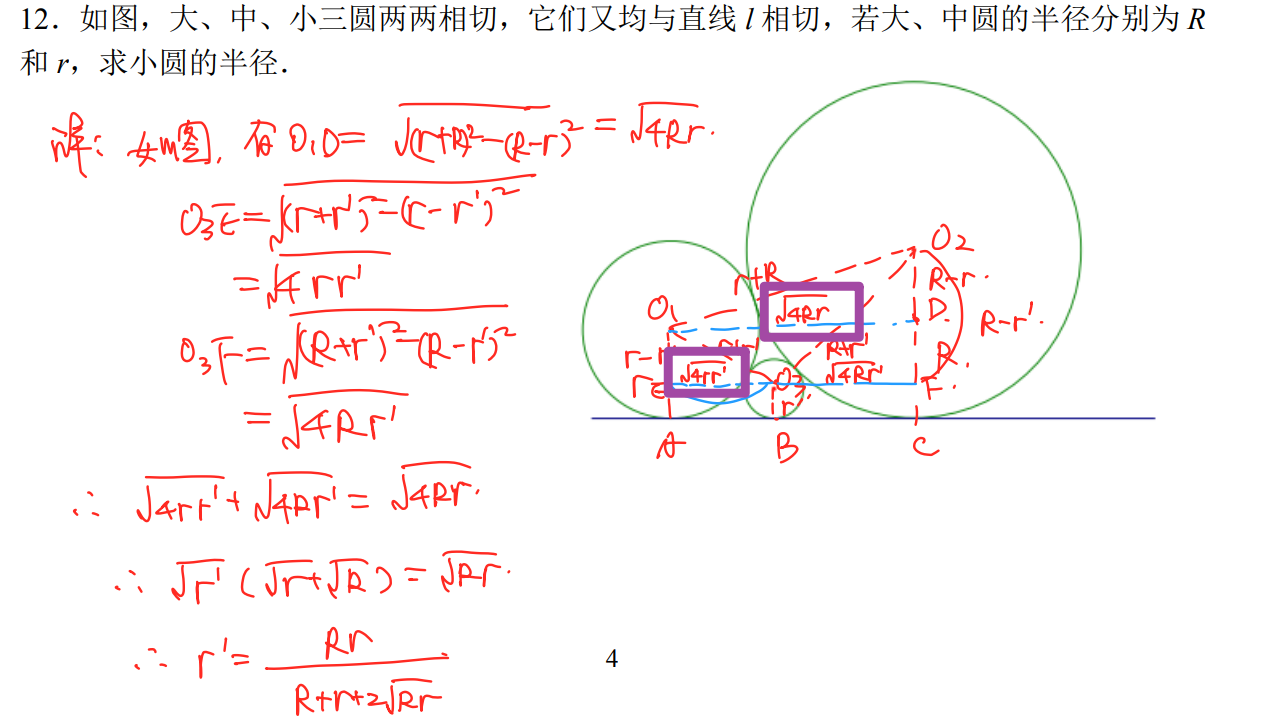 12．如图，大、中、小三圆两两相切，它们又均与直线 l 相切，若大、中圆的半径分别为 R
和 r，求小圆的半径．
解：如图，有 O₁D = √((r+R)²-(R-r)²) = √4Rr.
O₃E = √((r+r')²-(r-r')²)
= √4rr'
O₃F = √((R+r')²-(R-r')²)
= √4Rr'
∴ √4rr' + √4Rr' = √4Rr.
∴ √r' (√r+√R) = √Rr.
∴ r' = Rr / (R+r+2√Rr)
O₂
r+R
R-r.
√4Rr
O₁
D.
R-r'.
R+r'
R.
√4rr'
√4Rr'
r
E
O₃
F.
r'.
A
B
C
4